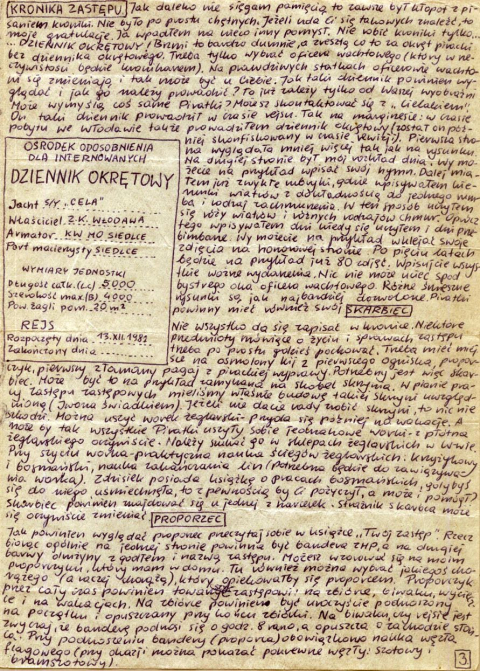 KRONIKA ZASTĘPU Jak daleko nie sięgam pamięcią to zawsze był kłopot z pi-
saniem kroniki. Nie było po prostu chętnych. Jeżeli uda Ci się takowych znaleźć, to
moje gratulacje. Ja wpadłem na nieco inny pomysł. Nie robić kroniki tylko...
... DZIENNIK OKRĘTOWY! Brzmi to bardzo dumnie, a zresztą co to za okręt piracki
bez dziennika okrętowego. Trzeba tylko wybrać oficera wachtowego (który w rze-
czywistości będzie kronikarzem). Na prawdziwych statkach oficerowie wachto-
wi się zmieniają i tak może być u Ciebie. Jak taki dziennik powinien wy-
glądać i jak go należy prowadzić? To już zależy tylko od Waszej wyobraźni
Może wymyślą coś same Piratki? Możesz skontaktować się z „Cielakiem".
On taki dziennik prowadził w czasie rejsu. Tak na marginesie: w czasie
pobytu we Włodawie także prowadziłem dziennik okrętowy (został on póź-
niej skonfiskowany w czasie rewizji). Pierwsza stro-
na wyglądała mniej więcej tak jak na rysunku.
Na drugiej stronie był mój rozkład dnia, wy mo-
żecie na przykład wpisać swój hymn. Dalej mia-
łem już zwykłe rubryki, gdzie wpisywałem kie-
runki wiatrów z dokładnością do jednego rum-
ba i rodzaj zachmurzenia. W ten sposób uczyłem
się róży wiatrów i różnych rodzajów chmur. Oprócz
tego wpisywałem dni kiedy się myłem i dni prze-
bimbane. Wy możecie na przykład wklejać swoje
zdjęcia na honorowej stronie. Po pięciu latach
będzie na przykład już 80 zdjęć. Wpisujcie wszys-
tkie ważne wydarzenia. Nic nie może ujść spod
bystrego oka oficera wachtowego. Różne śmieszne
rysunki są jak najbardziej dozwolone. Piratki
powinny mieć również swój SKARBIEC
OŚRODEK ODOSOBNIENIA
DLA INTERNOWANYCH
DZIENNIK OKRĘTOWY
Jacht S/Y „CELA"
Właściciel Z.K. WŁODAWA
Armator KW MO SIEDLCE
Port macierzysty SIEDLCE
WYMIARY JEDNOSTKI
Długość całk. (Lc) 5,000
Szerokość max (B) 4,000
Pow. żagli pom. 20 m²
REJS
Rozpoczęty dnia 13.XII.1981
Zakończony dnia
Nie wszystko da się zapisać w kronice. Niektóre
przedmioty mówiące o życiu i sprawach zastępu
trzeba po prostu gdzieś pochować. Trzeba mieć miej-
sce na osmolony kij z pierwszego ogniska, propor-
czyk, pierwszy złamany pagaj z pirackiej wyprawy. Potrzebny jest więc skar-
biec. Może być to na przykład zamykana na skobel skrzynia. W planie pra-
cy zastępu zastępowych mieliśmy właśnie budowę takiej skrzyni uwzględ-
nioną (Iwona świadkiem). Jeżeli nie dacie rady zrobić skrzyni, to nic nie
szkodzi. Można uszyć worek żeglarski - przyda się później na wakacje. A
może by tak wszystkie Piratki uszyły sobie jednakowe worki z płótna
żeglarskiego oczywiście. Należy szukać go w sklepach żeglarskich w W-wie.
Przy szyciu worka - praktyczna nauka ściegów żeglarskich: krzyżykowy
i bosmański, nauka zakańczania lin (potrzebna będzie do zawiązywa-
nia worka). Zdzisiek posiada książkę o pracach bosmańskich, gdybyś
się do niego uśmiechnęła, to z pewnością by Ci pożyczył, a może i pomógł.
Skarbiec powinien znajdować się u jednej z harcerek. Strażnik skarbca może
się oczywiście zmieniać. PROPORZEC
Jak powinien wyglądać proporzec przeczytaj sobie w książce „Twój zastęp". Rzecz
biorąc ogólnie na jednej stronie powinna być bandera ZHP, a na drugiej
barwy drużyny z godłem i nazwą zastępu. Możesz wzorować się na moim
proporczyku, który mam w domu. Tu również można wybrać jakiegoś cho-
rążego (a raczej chorążą), który opiekowałby się proporcem. Proporczyk
przez cały czas powinien towarzyszyć zastępowi: na zbiórce, biwaku, wyciecz-
ce, na wakacjach. Na zbiórce powinien być uroczyście podnoszony
na początku i opuszczany przy końcu zbiórki. Na biwaku czy rejsie jest
zwyczaj, że banderę podnosi się o godz. 8 rano, a opuszcza o zachodzie słoń-
ca. Przy podnoszeniu bandery (proporca) obowiązkowo nauka węzła
flagowego (przy okazji można pokazać pokrewne węzły: szotowy i
bramszotowy).
3.